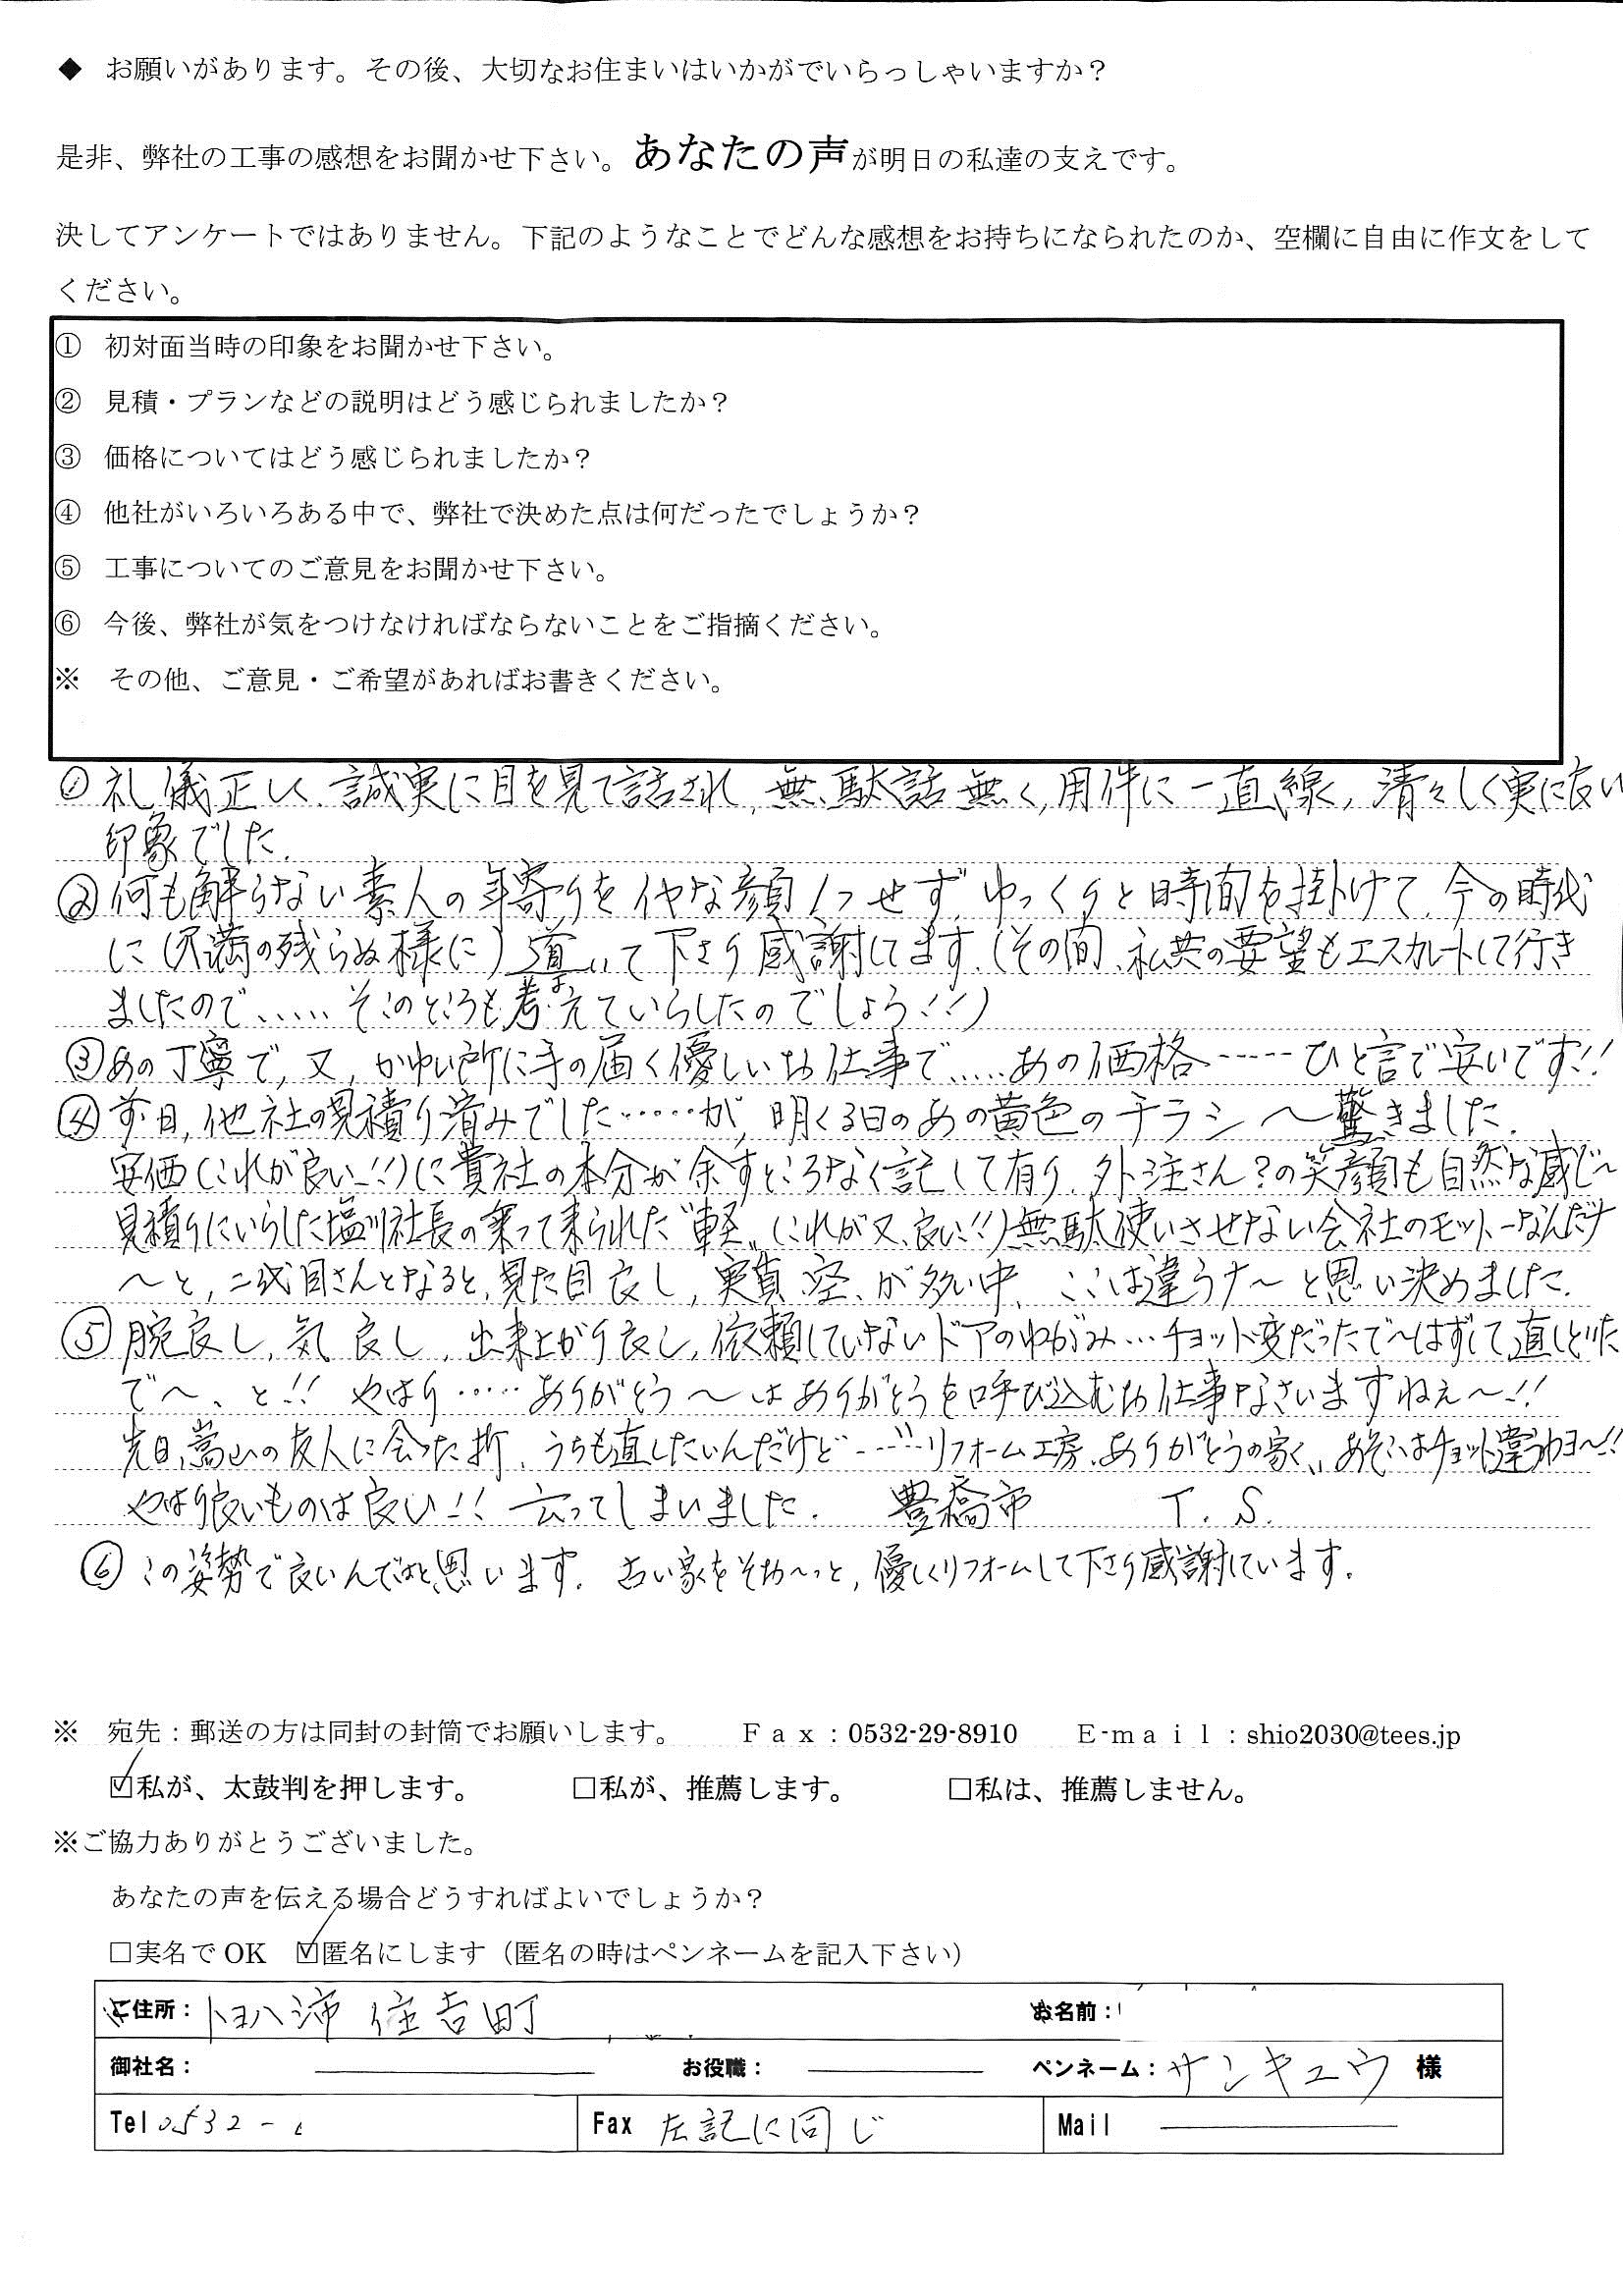 ◆ お願いがあります。その後、大切なお住まいはいかがでいらっしゃいますか？
是非、弊社の工事の感想をお聞かせ下さい。あなたの声が明日の私達の支えです。
決してアンケートではありません。下記のようなことでどんな感想をお持ちになられたのか、空欄に自由に作文をして
ください。
① 初対面当時の印象をお聞かせ下さい。
② 見積・プランなどの説明はどう感じられましたか？
③ 価格についてはどう感じられましたか？
④ 他社がいろいろある中で、弊社で決めた点は何だったでしょうか？
⑤ 工事についてのご意見をお聞かせ下さい。
⑥ 今後、弊社が気をつけなければならないことをご指摘ください。
※ その他、ご意見・ご希望があればお書きください。
① 礼儀正しく、誠実に目を見て話され、無駄話無く、用件に一直線、清々しく実に良い
印象でした。
② 何も解らない素人の年寄りをイヤな顔1つせず、ゆっくりと時間を掛けて、今の時代
に（不満の残らぬ様に）導いて下さり感謝してます。（その間、私共の要望もエスカレートして行き
ましたので、……そこのところも考えていらしたのでしょう!!）
③ あの丁寧で、又、かゆい所に手の届く優しいお仕事で……あの価格……ひと言で安いです!!
④ 前日、他社の見積り済みでした……が、明くる日のあの黄色のチラシ〜驚きました。
安価（これが良い!!）に貴社の本分が余すところなく記して有り、外注さん？の笑顔も自然な感じ〜
見積りにいらした塩川社長の乗って来られた〝軽〟（これが又、良い!!）無駄使いさせない会社のモットーなんだナ
〜と、二代目さんとなると、見た目良し、実真、空、が多い中、ここは違うナ〜と思い決めました。
⑤ 腕良し、気良し、出来上がり良し、依頼していないドアのゆがみ…チョット変だったで〜はずして、直しといた
で〜、と!! やはり……ありがとう〜はありがとうを呼び込むお仕事なさいますねぇ〜!!
先日、嵩山の友人に会った折、うちも直したいんだけど……リフォーム工房、ありがとうの家く、あそこはチョット違うわヨ〜!!
やはり良いものは良い!! 云ってしまいました。 豊橋市 T. S.
⑥ この姿勢で良いんでわと、思います。古い家をそお〜っと、優しくリフォームして下さり感謝しています。
※ 宛先：郵送の方は同封の封筒でお願いします。 Ｆａｘ：0532-29-8910 Ｅ-ｍａｉｌ：shio2030@tees.jp
☑私が、太鼓判を押します。 □私が、推薦します。 □私は、推薦しません。
※ご協力ありがとうございました。
あなたの声を伝える場合どうすればよいでしょうか？
□実名で OK ☑匿名にします（匿名の時はペンネームを記入下さい）
ご住所：トヨハシ市 住吉町 お名前：
御社名： お役職： ペンネーム：サンキュウ 様
Tel 0532- Fax 左記に同じ Mail